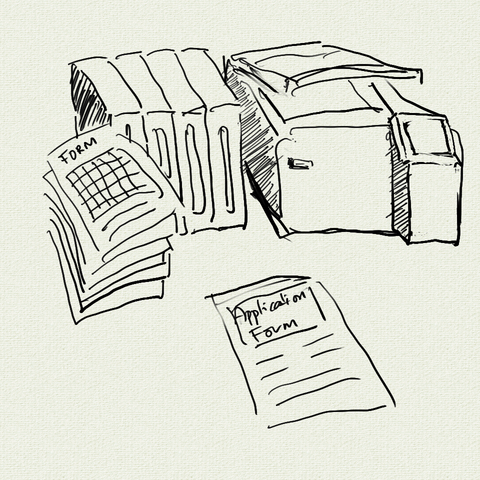 FORM
Application
Form